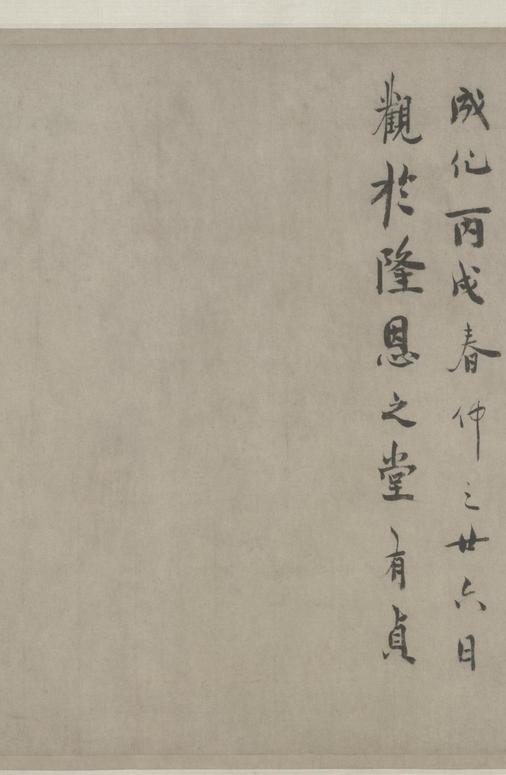 成化丙戌春仲之廿六日
觀於隆恩之堂有貞